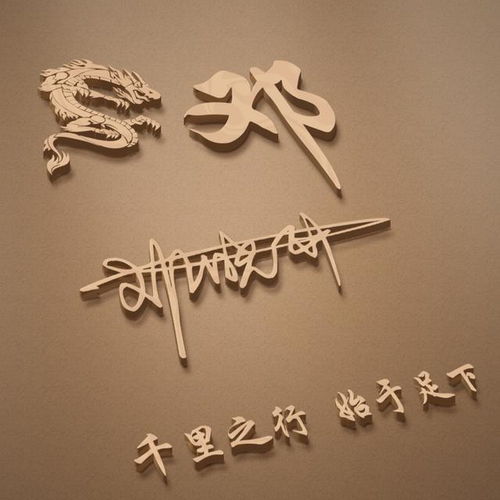 邓
千里之行 始于足下